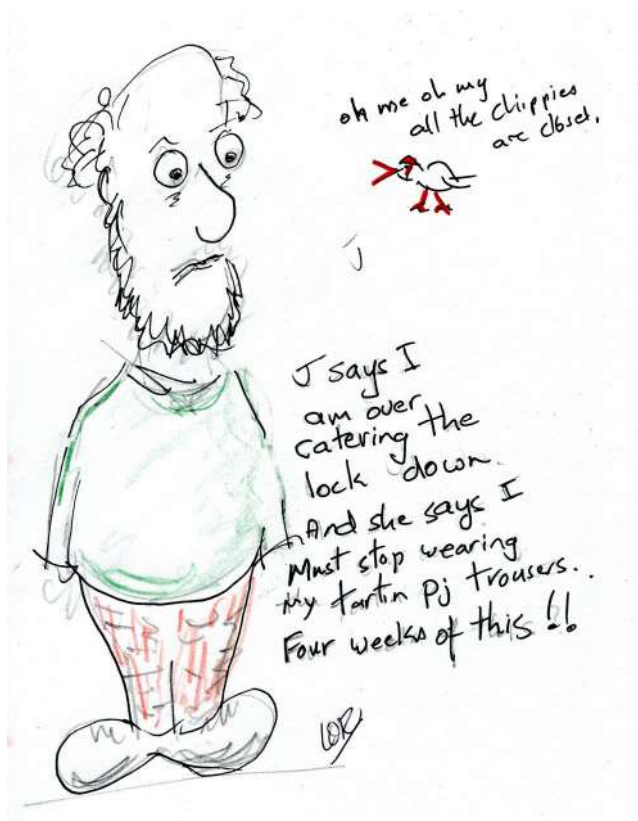 oh me oh my
all the chippies
are closed.
J
J says I
am over
catering the
lock down.
And she says I
Must stop wearing
My tartin Pj trousers..
Four weeks of this !!